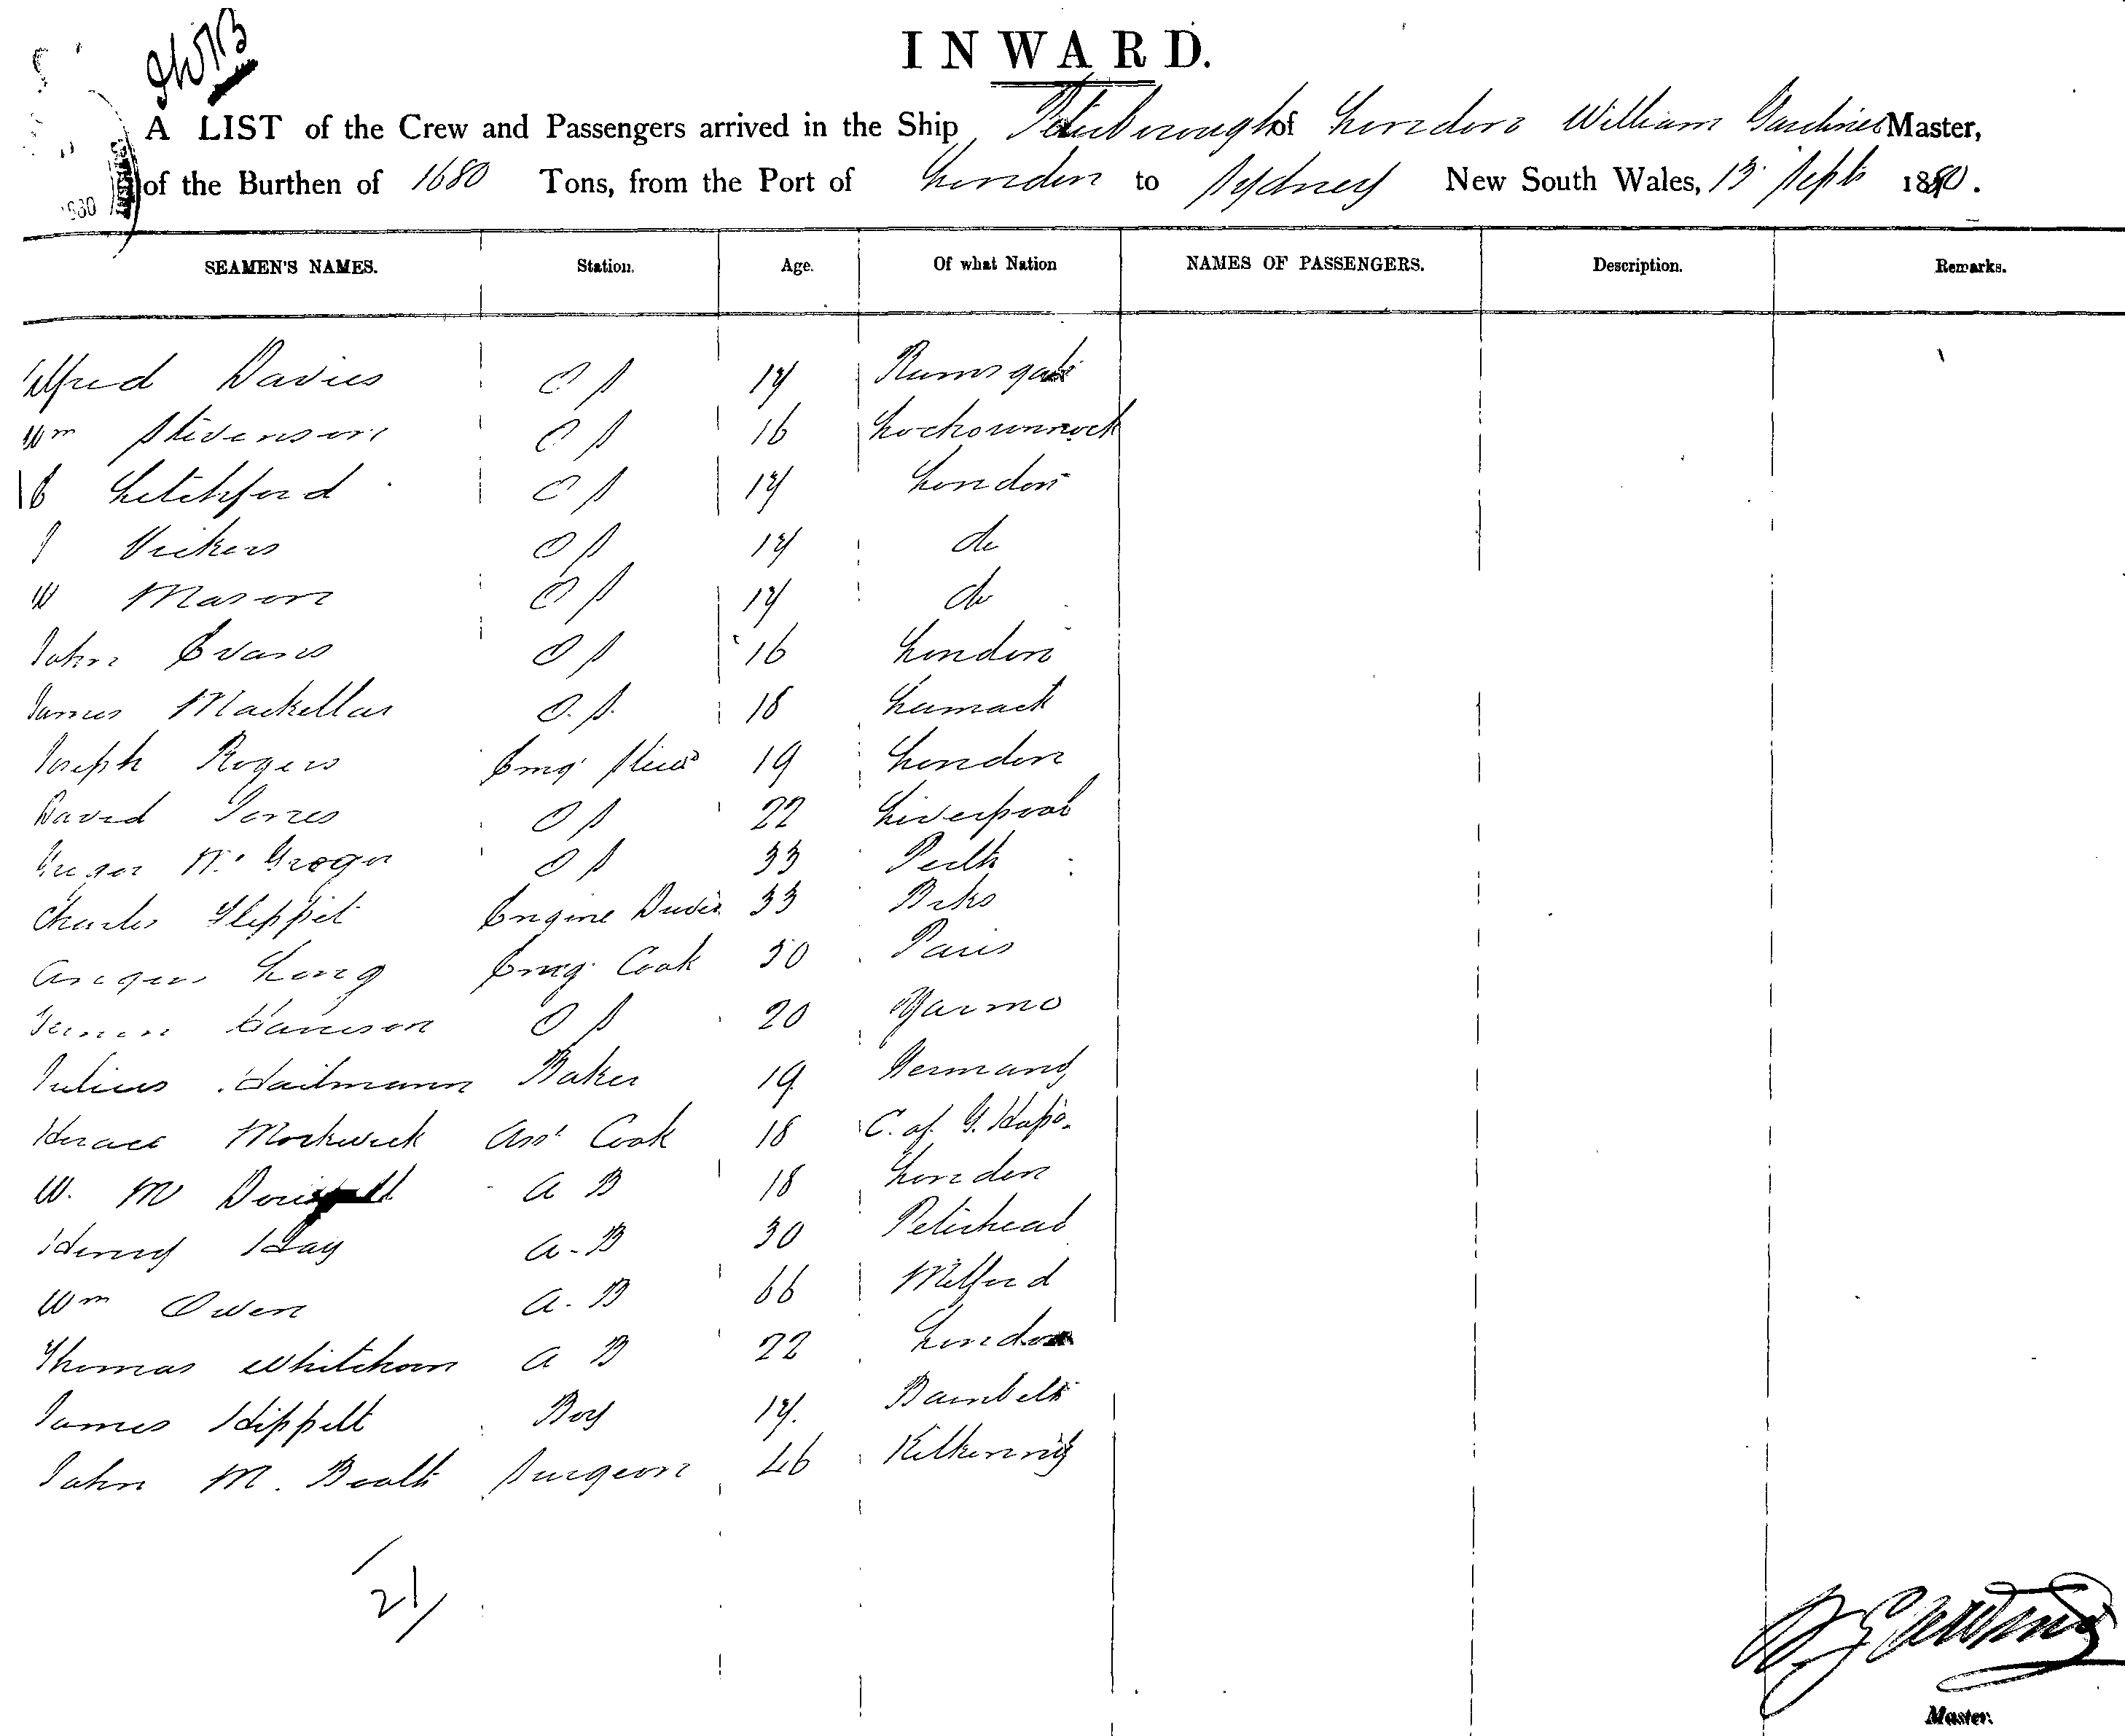 INWARD.
A LIST of the Crew and Passengers arrived in the Ship Peterborough of London William Gardiner Master,
of the Burthen of 1680 Tons, from the Port of London to Sydney New South Wales, 13 Septr 1880.
SEAMEN'S NAMES. Station. Age. Of what Nation NAMES OF PASSENGERS. Description. Remarks.
Alfred Davies O S 17 Ramsgate
Wm Stevenson O S 16
Letchford O S 17 London
J Vickers O S 17 do
W Mason O S 17 do
John Evans O S 16 London
James Mackellar O. S. 18
Joseph Rogers Emg Stewd 19 London
David Jones O S 22 Liverpool
Gregor Mc Gregor O S 33 Perth
Charles Engine Driver 33 Bcks
Angus Long Emg. Cook 50 Paris
Harrison O S 20 Yarmo
Julius Hailmann Baker 19 Germany
Horace Markwick Asst Cook 18 C. of G. Hope.
W. M A B 18 London
Henry Hay A-B 30 Peterhead
Wm Owen A. B 66 Milford
Thomas Whitehorn A B 22 London
James Hippelt Boy 17.
John M. Booth Surgeon 46 Kilkenny
21/
Master.